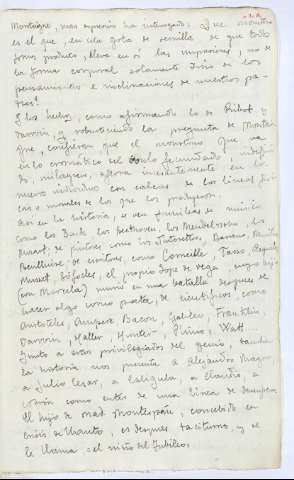 Montaigne, cuya expresión ha interrogado: ¿Que
es el que, en esta gota de semilla de que todos
somos producto, lleva en sí las impresiones, no de
la forma corporal solamente sino de los
pensamientos e inclinaciones de nuestros pa-
dres?
Y los hechos, como afirmando lo de Ribot y
Darwin, y robusteciendo la pregunta de Montai-
gne, confiesan que el monstruo que va
en lo cromático del óvulo fecundado, indefini-
do, milagroso, aflora incesantemente en los
nuevos individuos con calcos de las líneas físi-
cas o morales de los que los produjeron.
Así en la historia, se ven familias de músicos
como los Bach, los Beethoven, los Mendelssohn, los
Mozart, de pintores como los Tintoretto,
de escritores como Corneille, Tasso,
Musset, Sófocles, el propio Lope de Vega, cuyo hijo
(con Marcela) murió en una batalla después de
hacer algo como poeta, de científicos, como
Aristóteles, Ampere, Bacon, Galileo, Franklin,
Darwin, Haller, Hunter, Plinio, Watt...
Junto a estos privilegiados del genio, también
la historia nos presenta a Alejandro Magno,
a Julio Cesar, a Calígula, a Claudio, a
como entes de una línea de
El hijo de Mad Montespan, concebido en
crisis de llanto, es después taciturno y se
le llama: el niño del Jubileo.